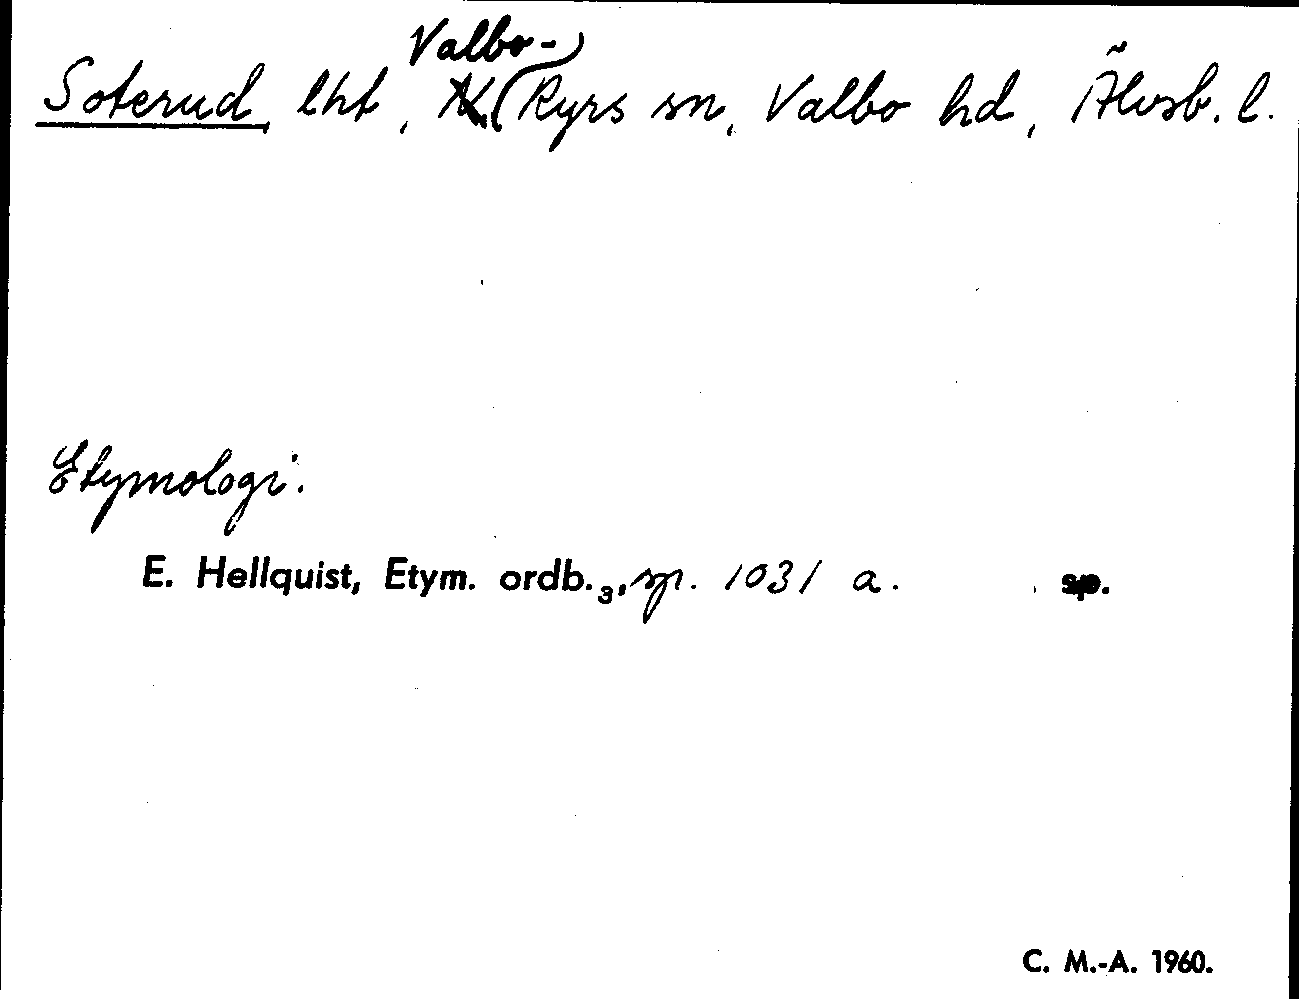 Valbo-
Soterud, lht, Ryrs sn, Valbo hd, Älvsb. l.
Etymologi:
E. Hellquist, Etym. ordb.3, sp. 1031 a. sp.
C. M.-A. 1960.